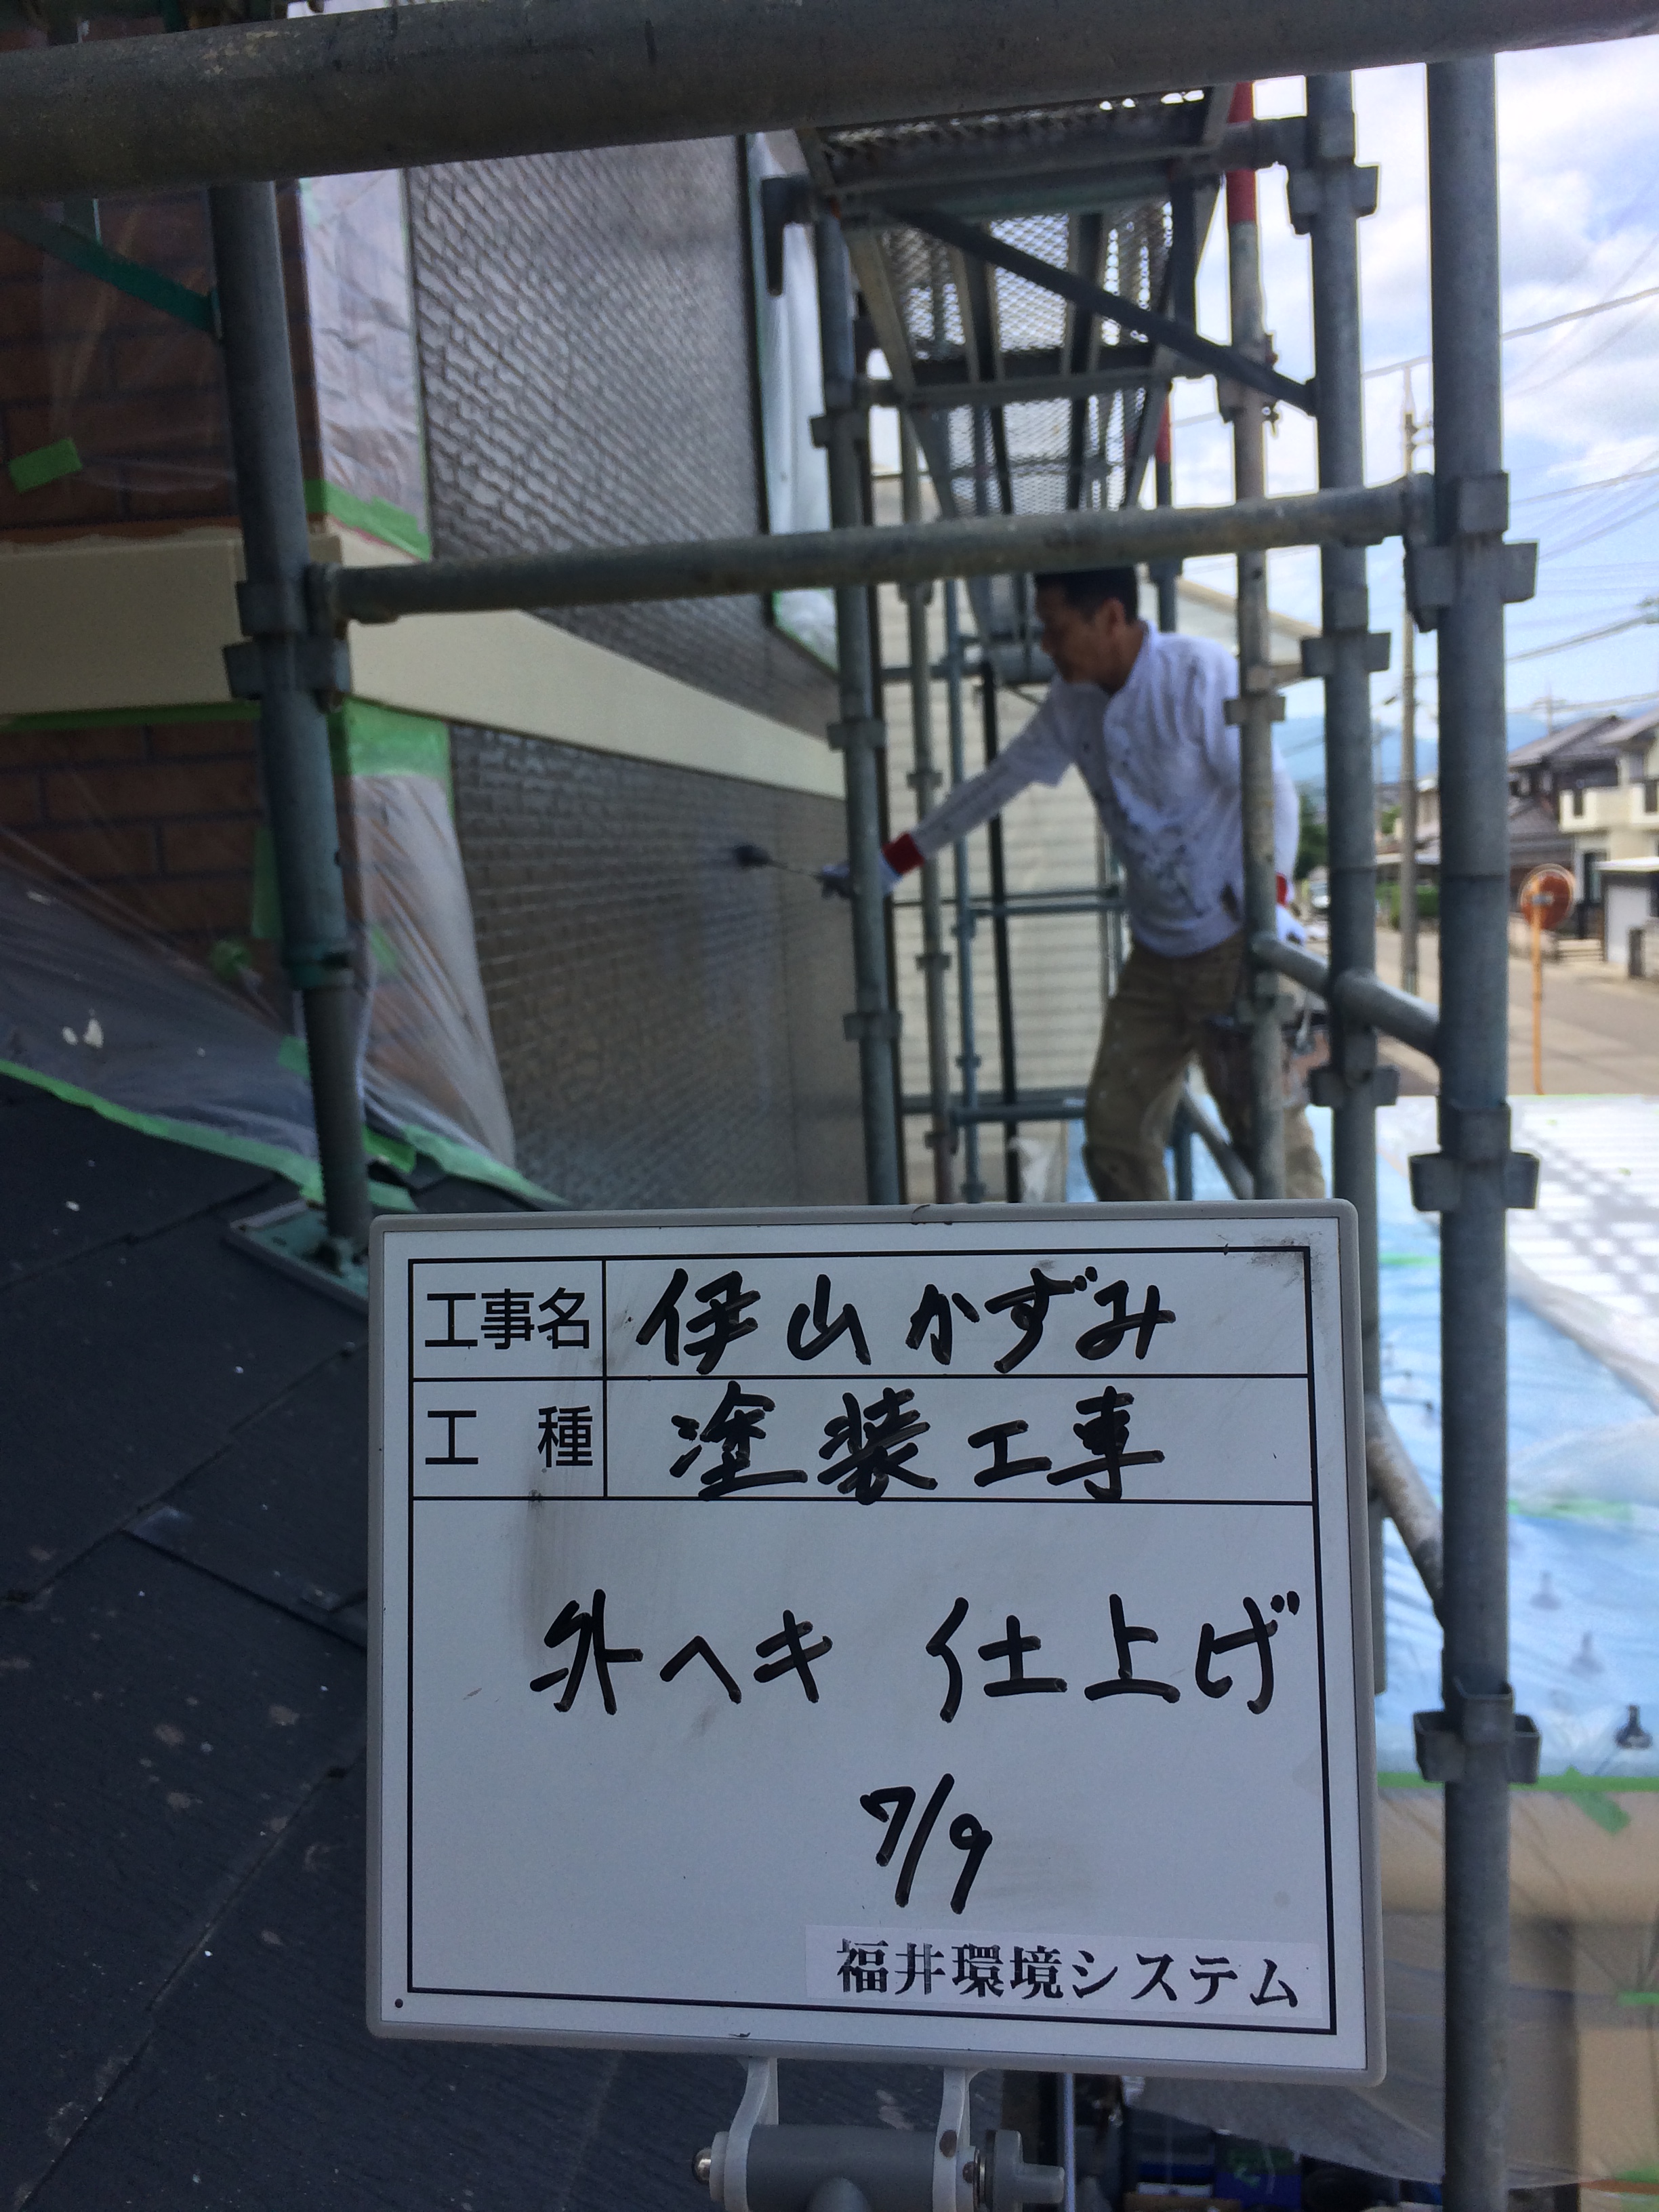 工事名 伊山かずみ
工種 塗装工事
外ヘキ 仕上げ
7/9
福井環境システム